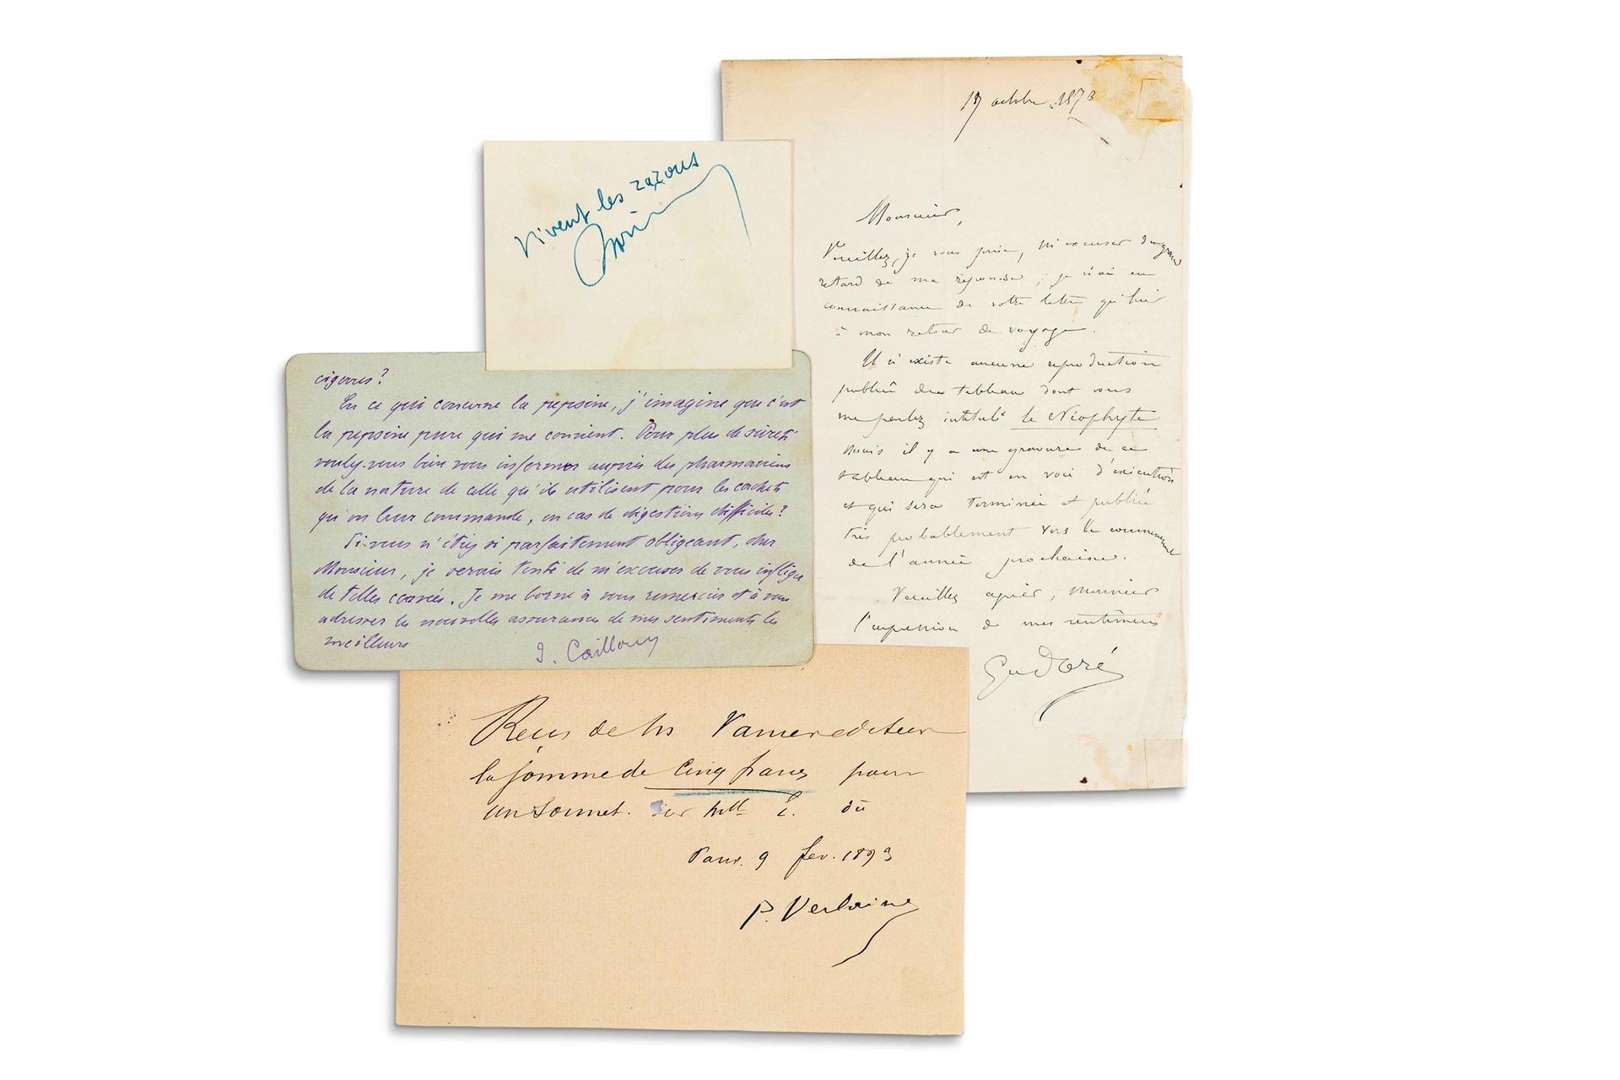 Vivent les zazous
cigarres?
En ce qui concerne la pepsine, j'imagine que c'est
la pepsine pure qui me convient. Pour plus de sûreté
voulez-vous bien vous informer auprès des pharmaciens
de la nature de celle qu'ils utilisent pour les cachets
qu'on leur commande, en cas de digestions difficiles?
Si vous n'étiez si parfaitement obligeant, cher
Monsieur, je serais tenté de m'excuser de vous infliger
de telles corvées. Je me borne à vous remercier et à vous
adresser la nouvelle assurance de mes sentiments les
meilleurs
Reçu de Mr Vanier editeur
la somme de cinq francs pour
un Sonnet. Sur Mlle E. dû
Paris. 9 fev. 1893
P. Verlaine
octobre 1873
Monsieur,
Veuillez, je vous prie, m'excuser du grand
retard de ma réponse; je n'ai eu
connaissance de votre lettre qu'hier
à mon retour de voyage.
Il n'existe aucune reproduction
publiée du tableau dont vous
me parlez intitulé le Néophyte
mais il y a une gravure de ce
tableau qui est en voie d'exécution
et qui sera terminée et publiée
très probablement vers le commencement
de l'année prochaine.
Veuillez agréer, Monsieur
l'expression de mes sentiments
Gve Doré